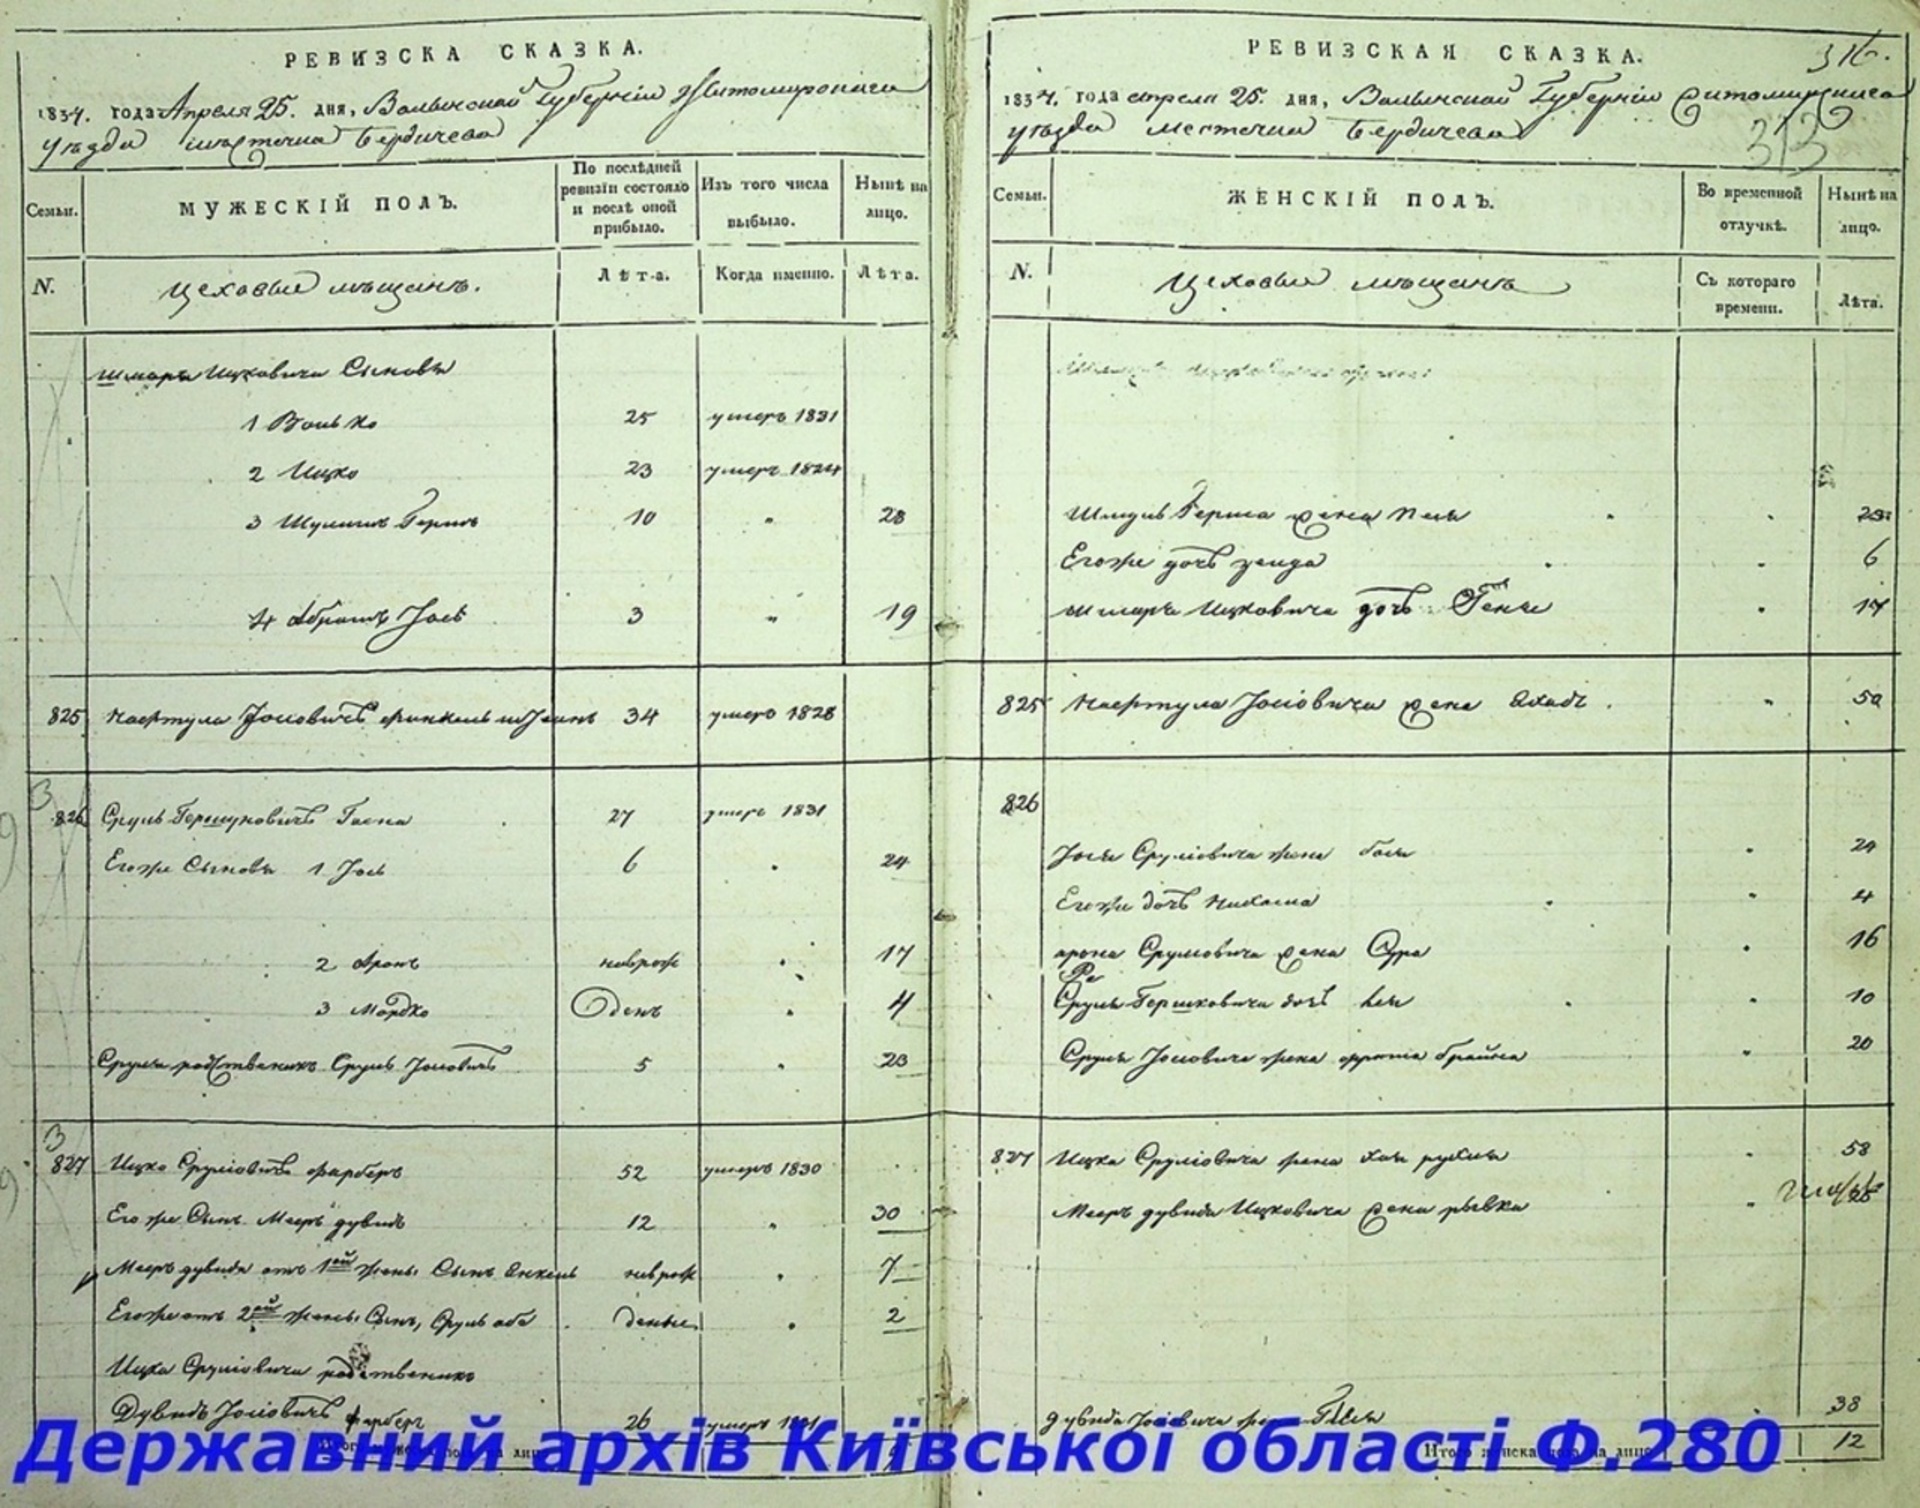 РЕВИЗСКА СКАЗКА.
1834. года Апреля 25. дня, Волынской Губернiи Житомирскаго
уезда местечка Бердичева
Семьи.
МУЖЕСКIЙ ПОЛЪ.
По послѣдней ревизiи состояло и послѣ оной прибыло.
Изъ того числа выбыло.
Нынѣ на лицо.
N.
Цеховые мещанъ.
Лѣта.
Когда именно.
Лѣта.
Шмаръ Ицковича Сыновья
1 Волько 25 умеръ 1831
2 Ицко 23 умеръ 1824
3 Шулимъ Гершъ 10 " 28
4 Абрамъ Iось 3 " 19
825 Нафтула Iосiовичъ 34 умеръ 1828
826 Сруль Гершуковичъ 27 умеръ 1831
Егоже Сыновья 1 Iось 6 " 24
2 Аронъ новрож " 17
3 Мордко денъ " 4
Сруля родственикъ Сруль Iосiовичъ 5 " 23
827 Ицко Срулiовичъ Фарберъ 52 умеръ 1830
Егоже Сынъ Мееръ дувидъ 12 " 30
Мееръ дувида отъ 1ой жены Сынъ Янкель новрож " 7
Егоже отъ 2ой жены Сынъ, Сруль аба денные " 2
Ицка Срулiовича родственикъ
Дувидъ Iосiовичъ фарберъ 26 умеръ
РЕВИЗСКАЯ СКАЗКА.
1834. года апреля 25. дня, Волынской Губернiи Житомирскаго
313
уезда местечка Бердичева
Семьи.
ЖЕНСКIЙ ПОЛЪ.
Во временной отлучкѣ.
Нынѣ на лицо.
N.
Цеховые мещанъ
Съ котораго времени.
Лѣта.
Шмуль Герша жена Песя "
Егоже дочь " 6
Шмаръ Ицковича дочь Геня " 17
825 Нафтула Iосiовича жена " 50
826
Iося Срулiовича жена бася " 24
Егоже дочь " 4
арона Срулiовича жена Сура " 16
Сруля Гершковича дочь " 10
Сруля Iосiовича жена брайна " 20
827 Ицка Срулiовича жена хая рухля " 58
Мееръ дувида Ицковича жена рывка "
дувида Iосiовича жена 38
Итого женска пола на лицо 12
Державний архів Київської області Ф.280